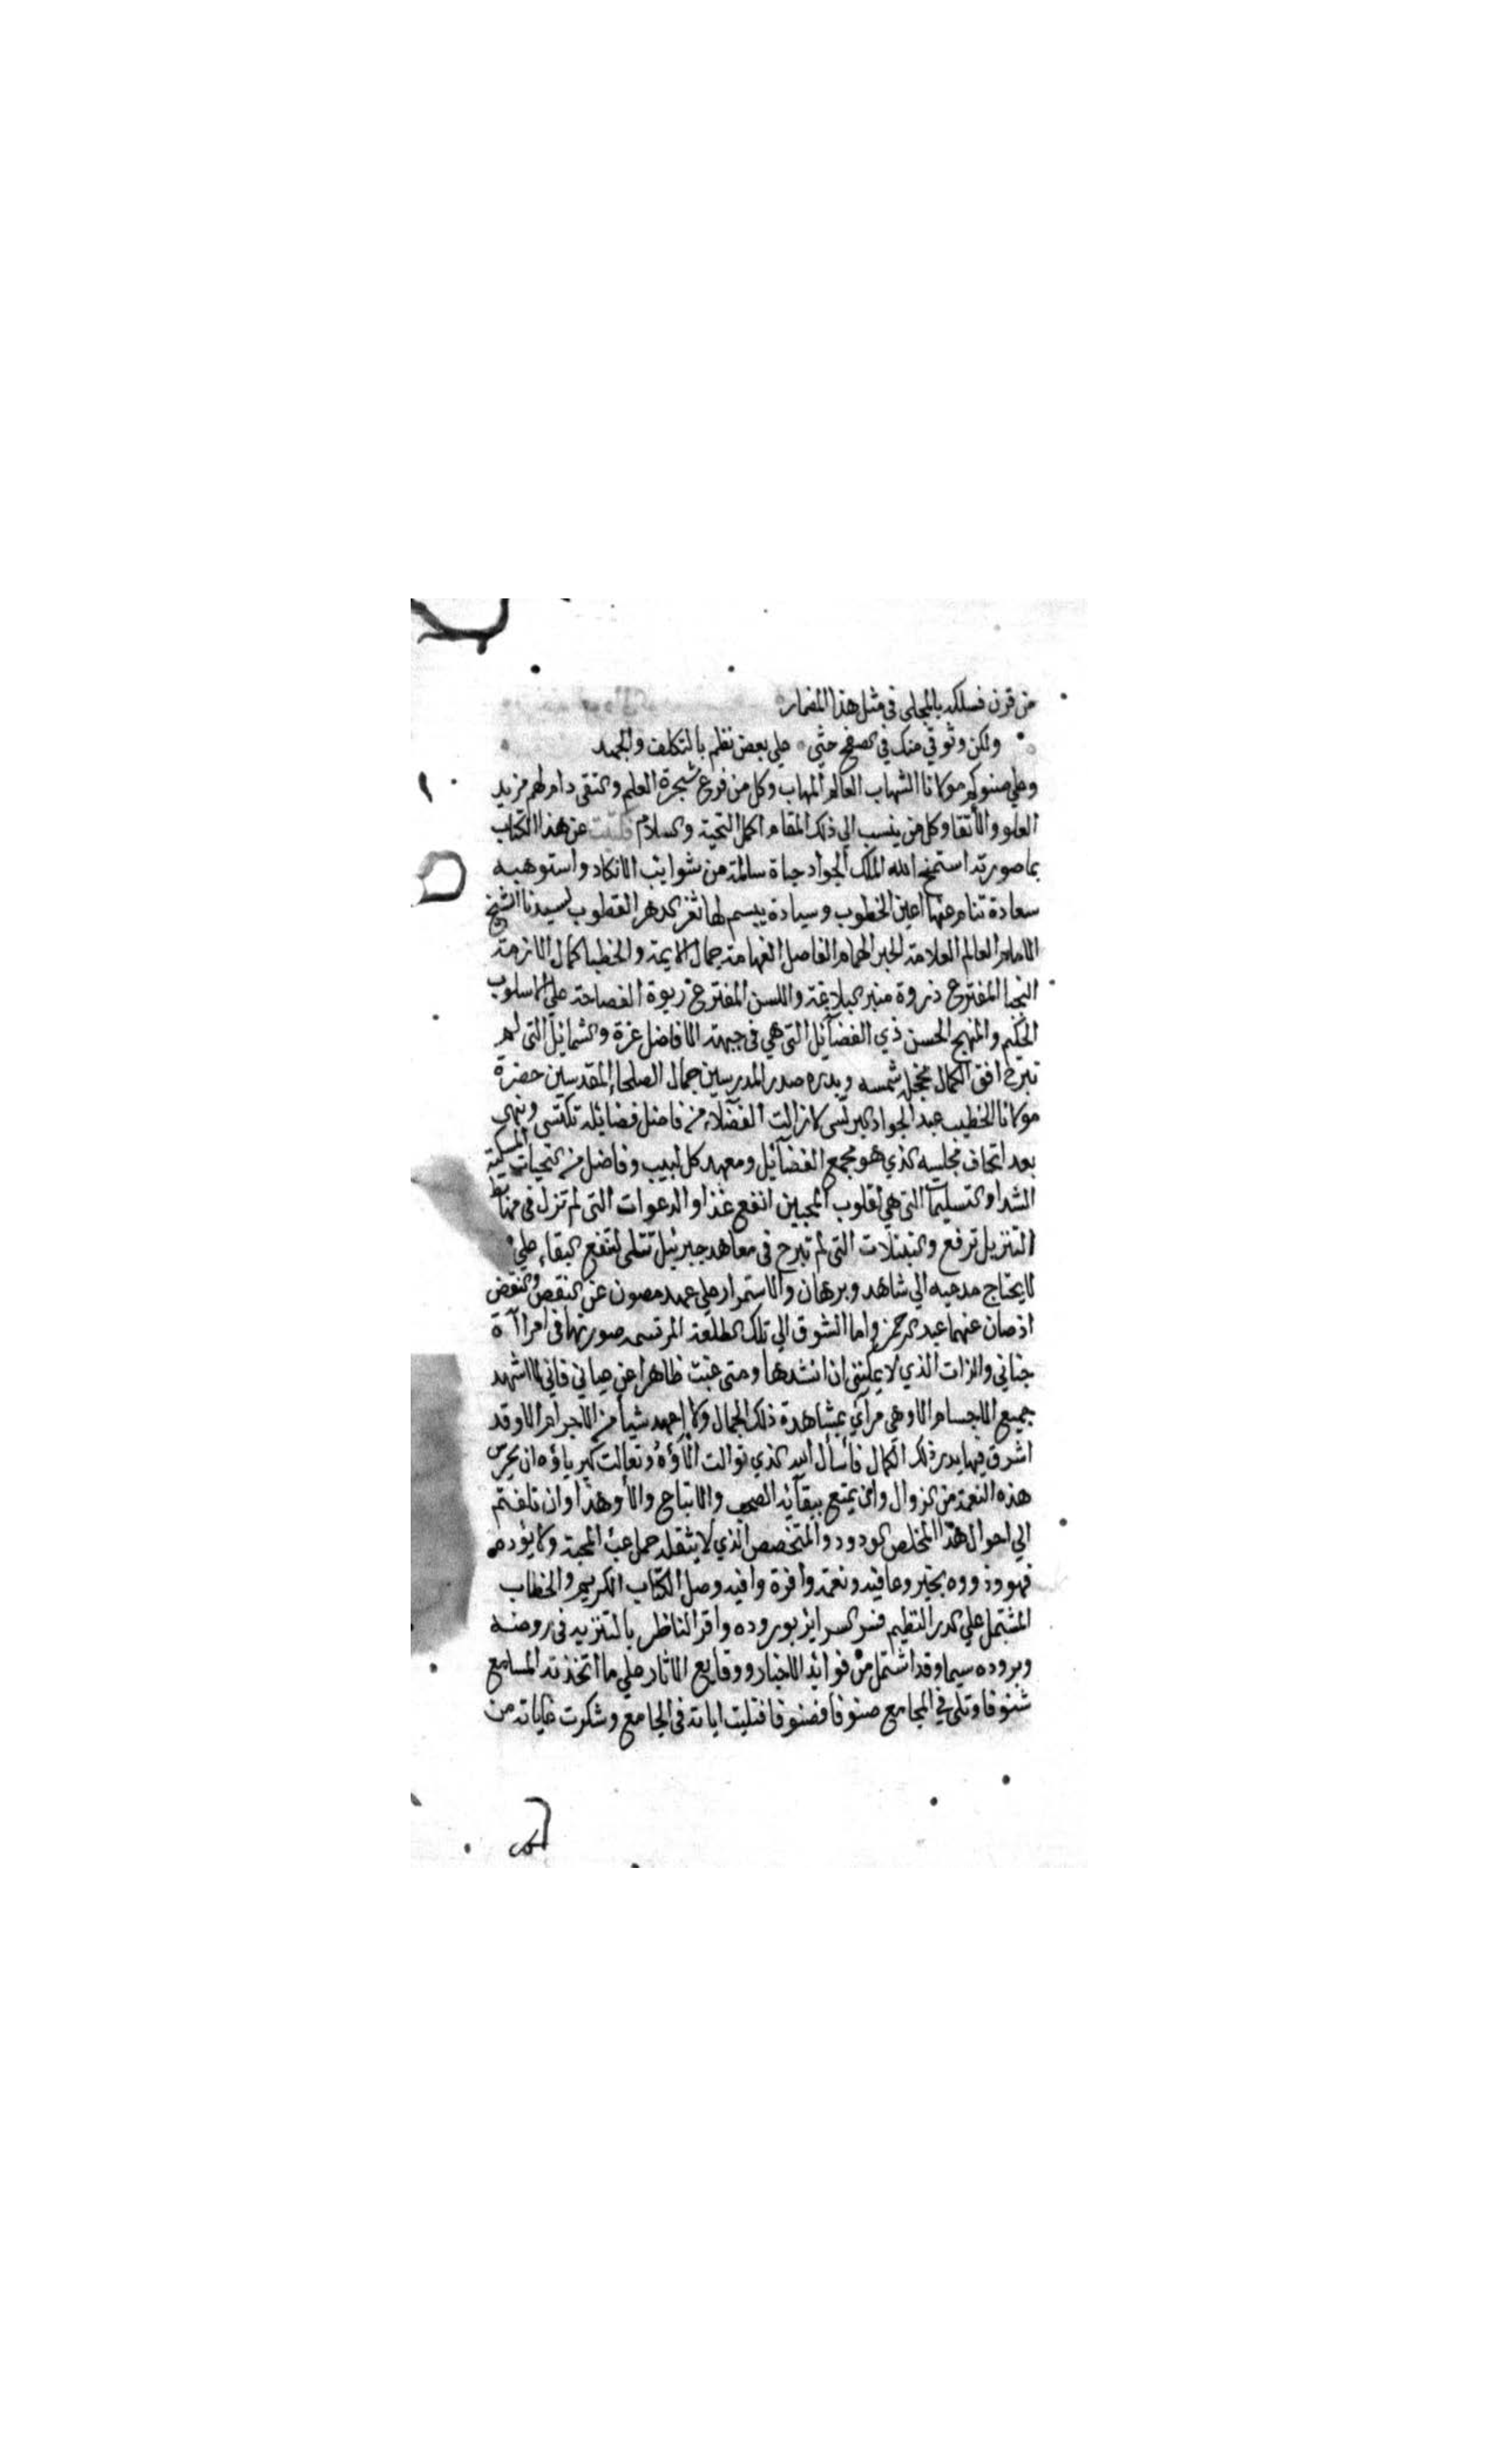 من قرن فسلكه بالمجلى في مثل هذا المضمار
ولكن وثوقي منك في الصفح حثني على بعض نظم بالتكلف والجهد
وعلى صنوكم مولانا الشهاب العالم المهاب وكل من فرع شجرة العلم والتقى دام لهم مزيد
العلو والأتقا وكل من ينسب الي ذلك المقام اكمل التحية والسلام فكتبت عن هذا الكتاب
بما صورته استمنح الله الملك الجواد حياة سالمة من شوايب الانكاد واستوهبه
سعادة تنام عنها اعين الخطوب وسيادة يبسم لها ثغر الدهر القطوب لسيدنا الشيخ
الامام العالم العلامة الحبر الهمام الفاضل الفهامة جمال الايمة والخطبا كمال الازمة
النجبا المفترع ذروة منبر البلاغة واللسن المفترع ربوة الفصاحة علي الاسلوب
الحكيم والمنهج الحسن ذي الفضآئل التي هي في جبهة الافاضل غرة والشمايل التي لم
تبرح افق الكمال مخجل شمسه وبدره صدر المدرسين جمال الصلحاء المقدسين حضرة
مولانا الخطيب عبد الجواد البرلسي لا زالت الفضلاء من فاضل فضايله تكتسى وينهى
بعد اتحاف مجلسه الذي هو مجمع الفضآئل ومعهد كل لبيب وفاضل من التحيات المسكية
الشذا والتسليمات التي هي لقلوب المحبين انفع غذا والدعوات التي لم تزل في مهابط
التنزيل ترفع والتبتلات التي لم تبرح في معاهد جبرئيل تتلى لتنفع البقاء علي
لا يحتاج مدعيه الي شاهد وبرهان والاستمرار علي عهد مصون عن النقص والنقض
اذ صان عنهما عبد الرحمن واما الشوق الي تلك الطلعة المرتسمه صورتها في امراآة
جناني والذات الذي لا يمكنني ان انشدها ومتى غبت ظاهرا عن عياني فاني لا اشهد
جميع الاجسام الا وهي مرآي بمشاهدة ذلك الجمال ولا اعهد شيأ من الاجرام الا وقد
اشرق فيها بدر ذلك الكمال فأسأل الله الذي توالت الآؤه وتعالت كبرياؤه ان يحرس
هذه النعمة من الزوال وان يمتع ببقآئه الصحب والاتباع والآل وهذا وان تلفتم
الي احوال هذا المخلص الودود والمتخصص الذي لا يثقله حمل عبء المحبة ولا يؤده
فهو وذووه بخير وعافيه ونعمة وافرة وافيه وصل الكتاب الكريم والخطاب
المشتمل علي الدر النظيم فسر السرايز بوروده واقر الناظر بالتنزيه في روضه
وبروده سيما وقد اشتمل من فوائد الاخبار ووقايع الاثار علي ما اتخذته المسامع
شنوفا وتلى في المجامع صنوفا فصنوفا فتليت اياته في الجامع وشكرت غاياته من